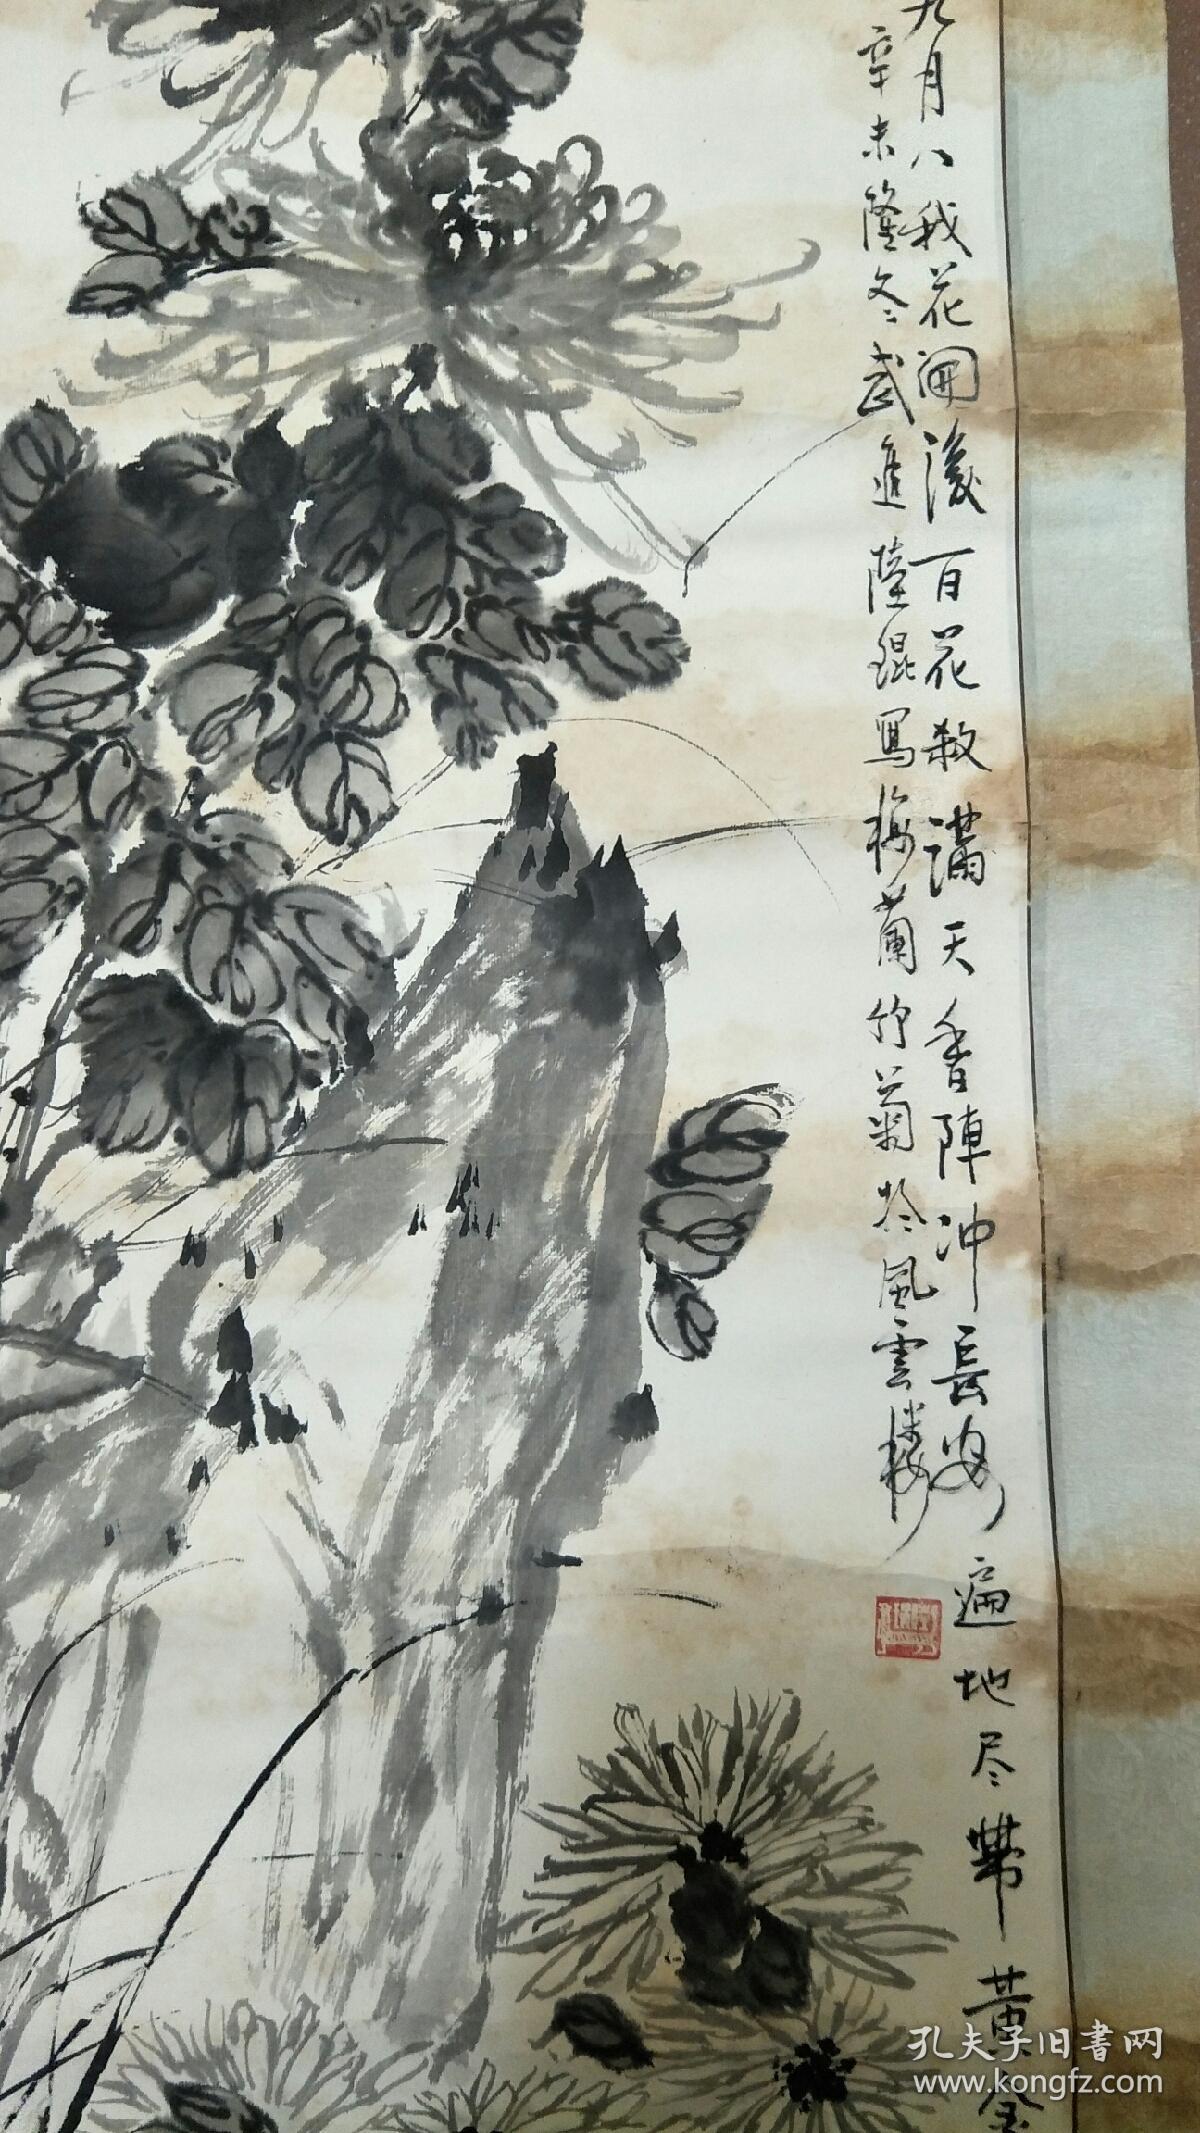 九月八我花開後百花殺滿天香陣沖長安遍地尽帶黄金
辛未隆冬武進陸琨寫梅蘭竹菊於風雲樓
孔夫子旧書网
www.kongfz.com